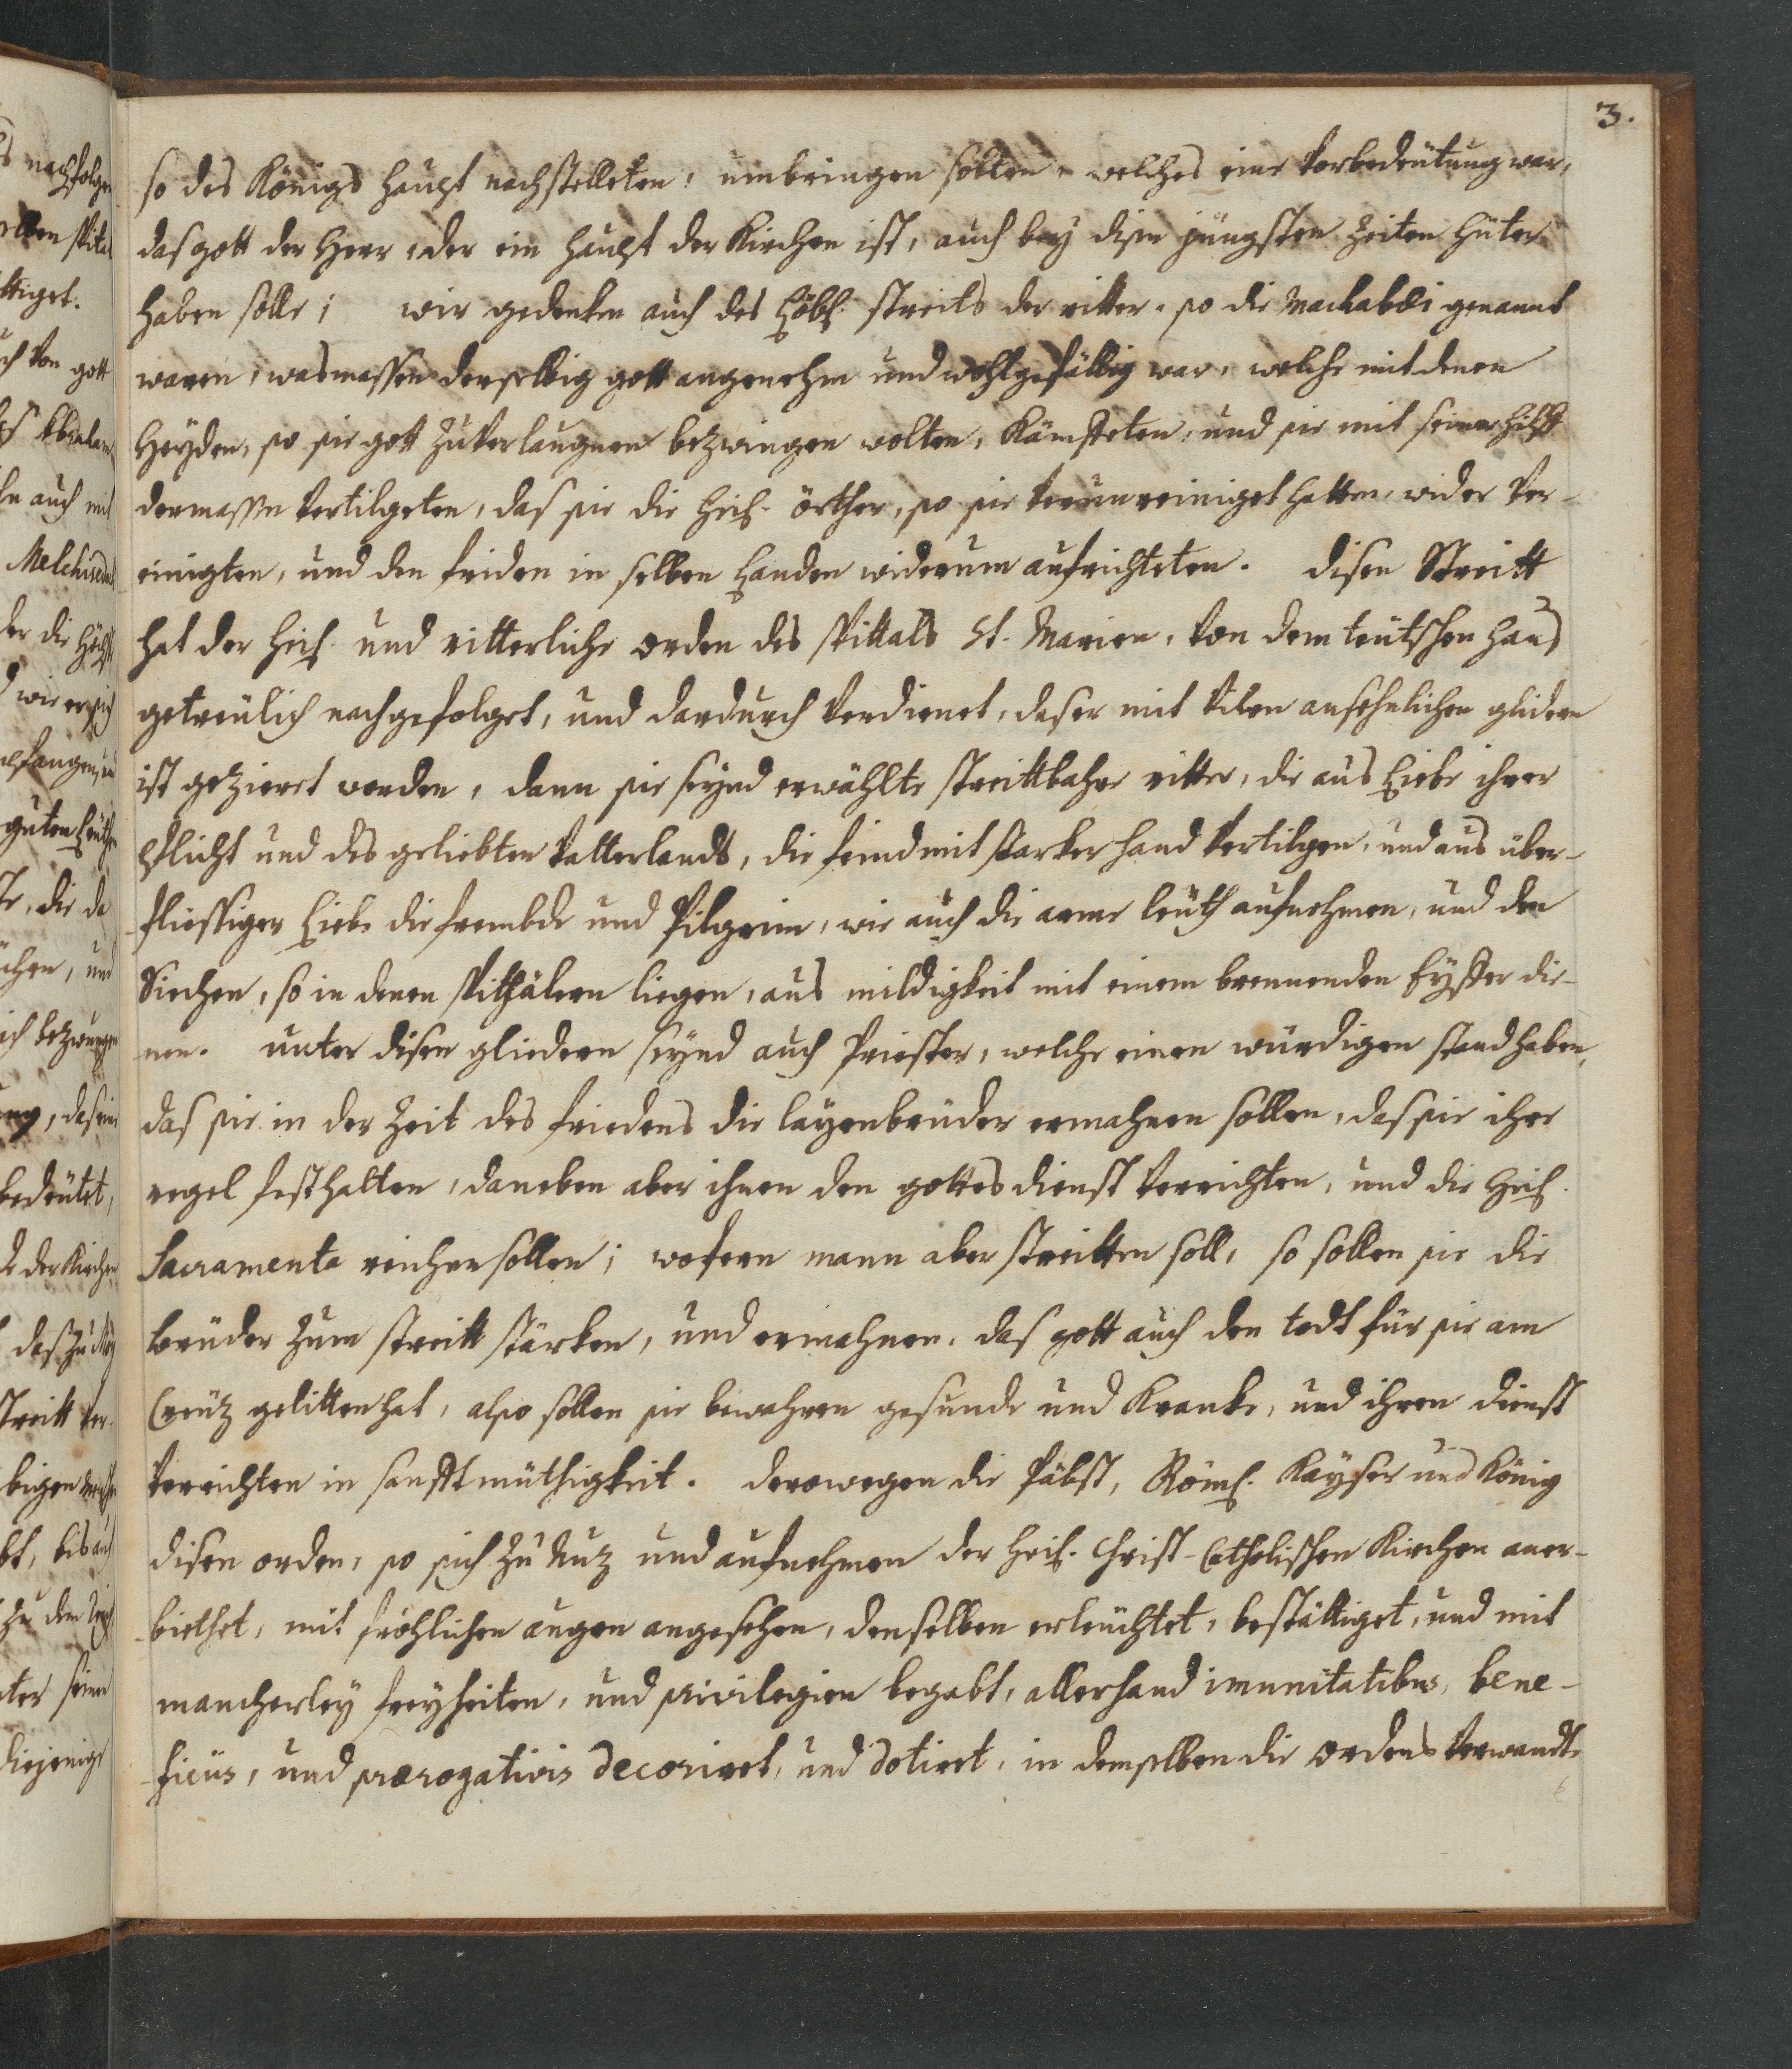 3.
so des Königs haupt nachstelleten, umbringen solten, welches eine Vorbedeütung war,
das gott der Herr, der ein haupt der Kirchen ist, auch bey disen jüngsten Zeiten hüter
haben solle; wir gedenken auch des Löbl. streits der ritter, so die Machabæi genannt
waren, wasmassen derselbig gott angenehm und wohlgefällig war, welche mit denen
Heyden, so sie gott zu verlaugnen bezwingen wolten, Kämpfeten, und sie mit seiner hilff
dermassen Vertilgeten, das sie die heil. örther, so sie Verunreiniget hatten, wider Ver-
einigten, und den friden in selben Landen widerum aufrichteten. disen Streitt
hat der heil. und ritterliche orden des spittals St. Marien, Von dem teütschen haus
getreülich nachgefolget, und dardurch Verdienet, das er mit Vilen ansehnlichen glidern
ist geziert worden, dann sie seynd erwählte streittbahre ritter, die aus Liebe ihrer
Pflicht und des geliebten Vatterlands, die feind mit starker hand Vertilgen, und aus über-
fliessiger Liebe die frembde und Pilgrim, wie auch die arme leüth aufnehmen, und den
Siechen, so in denen spithälern liegen, aus mildigkeit mit einem brennenden Eyffer die-
nen. unter disen gliedern seynd auch Priester, welche einen würdigen stand haben,
das sie in der Zeit des friedens die layenbrüder ermahnen sollen, das sie ihre
regel festhalten, daneben aber ihnen den gottesdienst Verrichten, und die heil.
Sacramenta reichen sollen; wofern mann aber streitten soll, so sollen sie die
brüder zum streitt stärken, und ermahnen, das gott auch den todt für sie am
Creütz gelitten hat, also sollen sie bewahren gesunde und Kranke, und ihren dienst
Verrichten in sanfftmüthigkeit. derowegen die Päbst, Röml. Kayser und König
disen orden, so sich zu Nuz und aufnehmen der heil. Christ-Catholischen Kirchen aner-
biethet, mit fröhlichen augen angesehen, denselben erleüchtet, bestättiget, und mit
mancherley freyheiten, und privilegien begabt, allerhand imunitatibus, bene-
ficiis, und prærogativis decoriret, und dotiert, in demselben die ordens Verwandte